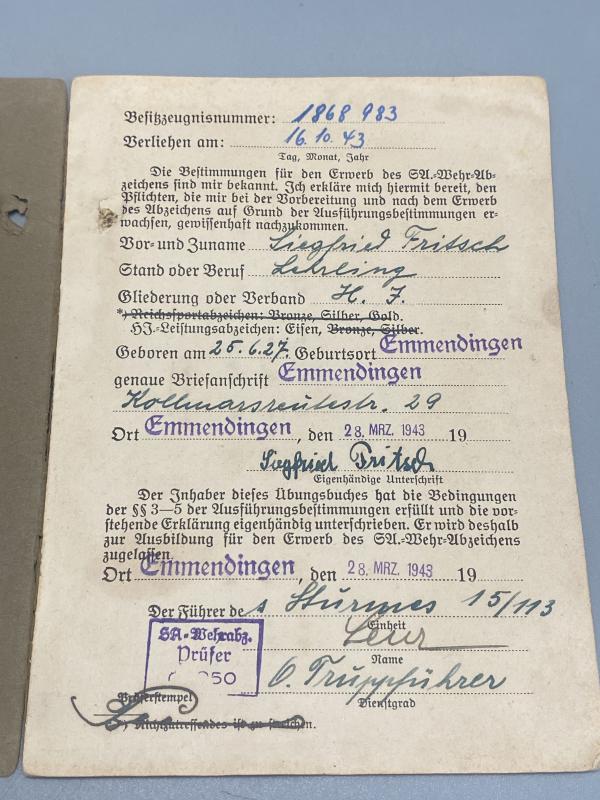 Besitzzeugnisnummer: 1868 983
Verliehen am: 16.10.43
Tag, Monat, Jahr
Die Bestimmungen für den Erwerb des SA.-Wehr-Ab-
zeichens sind mir bekannt. Ich erkläre mich hiermit bereit, den
Pflichten, die mir bei der Vorbereitung und nach dem Erwerb
des Abzeichens auf Grund der Ausführungsbestimmungen er-
wachsen, gewissenhaft nachzukommen.
Vor- und Zuname Siegfried Fritsch
Stand oder Beruf Lehrling
Gliederung oder Verband H. J.
*) Reichssportabzeichen: Bronze, Silber, Gold.
HJ.-Leistungsabzeichen: Eisen, Bronze, Silber.
Geboren am 25.6.27. Geburtsort Emmendingen
genaue Briefanschrift Emmendingen
Kollmarsreutestr. 29
Ort Emmendingen, den 28. MRZ. 1943 19
Siegfried Fritsch
Eigenhändige Unterschrift
Der Inhaber dieses Übungsbuches hat die Bedingungen
der §§ 3—5 der Ausführungsbestimmungen erfüllt und die vor-
stehende Erklärung eigenhändig unterschrieben. Er wird deshalb
zur Ausbildung für den Erwerb des SA.-Wehr-Abzeichens
zugelassen.
Ort Emmendingen, den 28. MRZ. 1943 19
Der Führer des Sturmes 15/113
Einheit
Name
SA.-Wehrabz.
Prüfer
O. Truppführer
Dienstgrad
Prüferstempel
*) Nichtzutreffendes ist zu streichen.